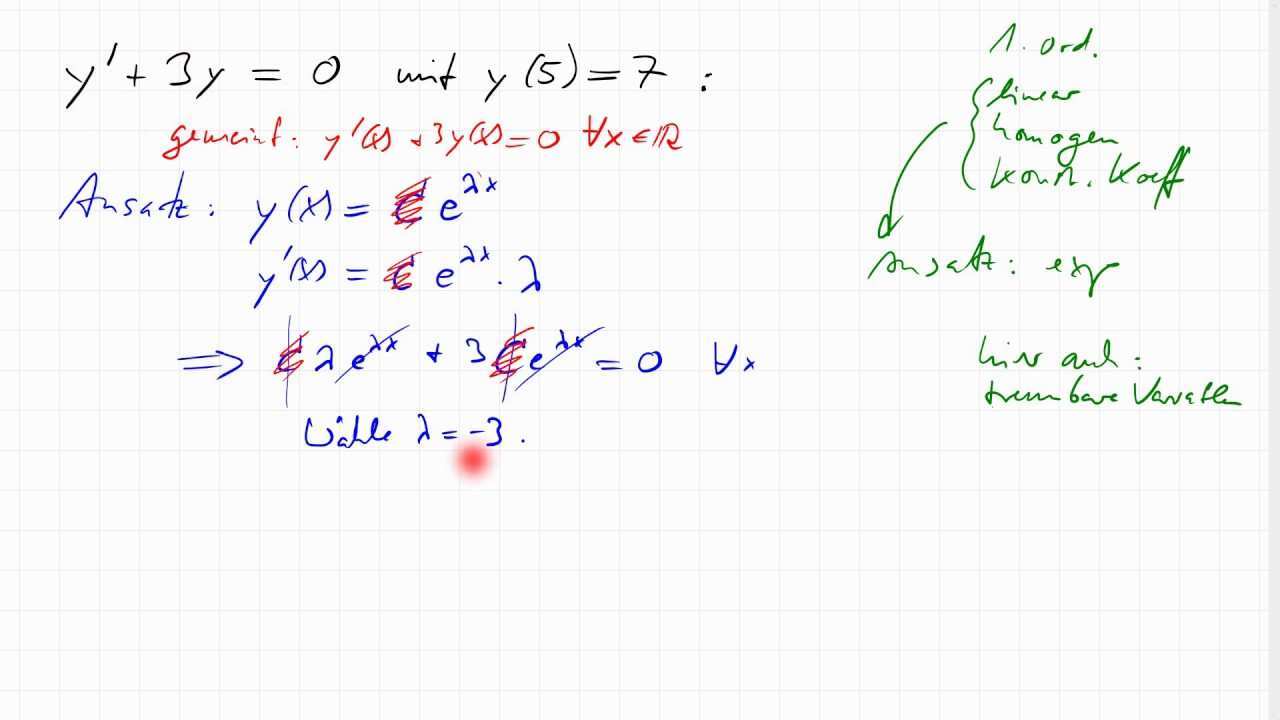 y' + 3y = 0 mit y(5) = 7 :
gemeint: y'(x) + 3y(x) = 0 ∀x ∈ ℝ
Ansatz: y(x) = C e^{λx}
y'(x) = C e^{λx} · λ
⟹ C λ e^{λx} + 3 C e^{λx} = 0 ∀x
Wähle λ = -3 .
1. Ord.
linear
homogen
konst. Koeff
Ansatz: exp
hier auch:
trennbare Variablen